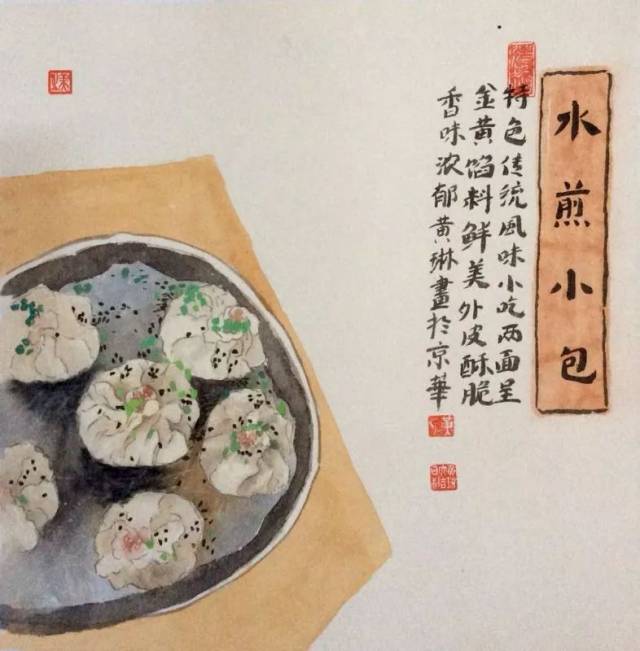 水煎小包
特色传统風味小吃两面呈
金黄馅料鲜美外皮酥脆
香味浓郁黄琳畫於京華